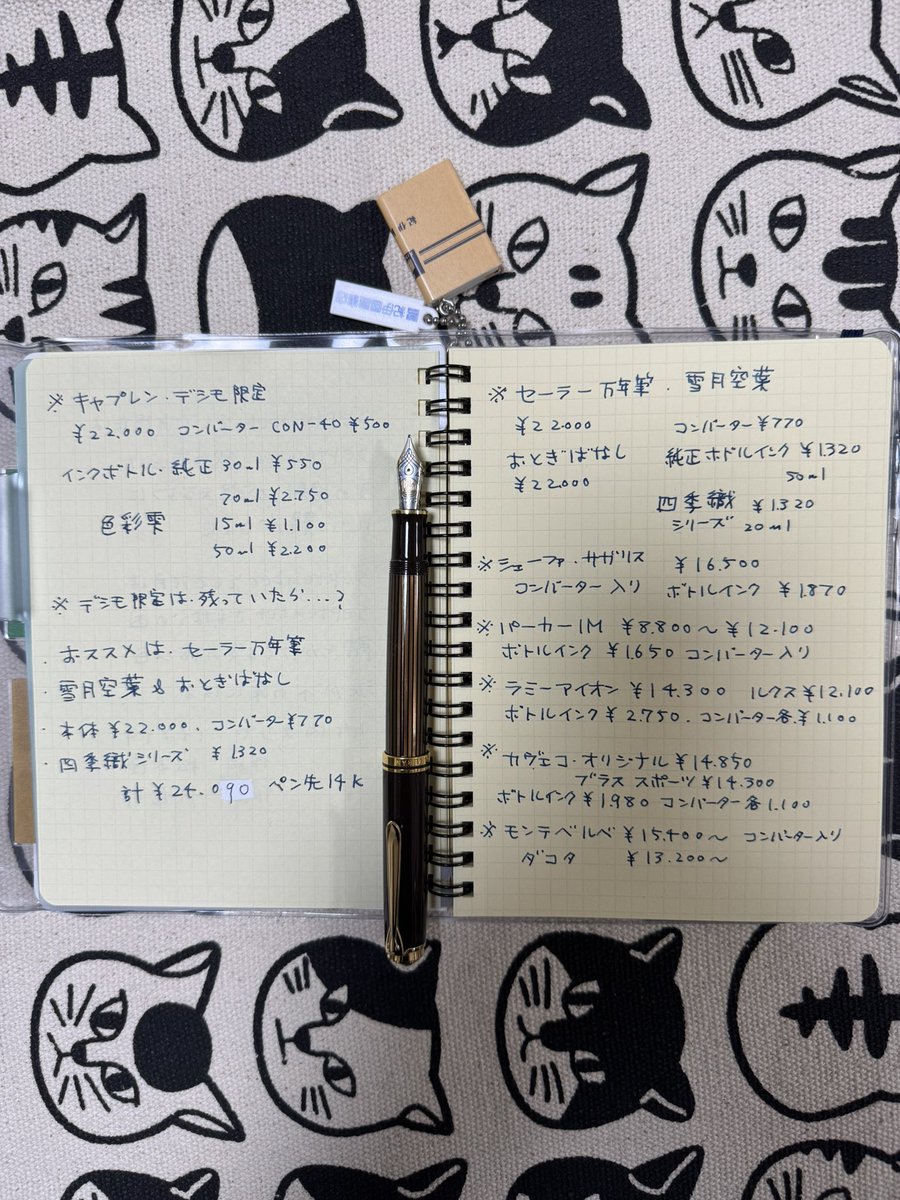 紀伊
紀伊國屋書店
※ キャプレン・デシモ限定
¥22.000 コンバーター CON-40 ¥500
インクボトル・純正 30ml ¥550
70ml ¥2.750
色彩雫 15ml ¥1.100
50ml ¥2.200
※ デシモ限定は、残っていたら…?
・おススメは、セーラー万年筆
・雪月空葉 & おとぎばなし
・本体 ¥22.000、コンバーター¥770
・四季織シリーズ ¥1320
計 ¥24.090 ペン先14K
※ セーラー万年筆・雪月空葉
¥22.000 コンバーター¥770
おとぎばなし 純正ボトルインク ¥1.320
¥22.000 50ml
四季織 ¥1.320
シリーズ 20ml
※シェーファ・サガリス ¥16.500
コンバーター入り ボトルインク ¥1.870
※パーカーIM ¥8.800〜¥12.100
ボトルインク ¥1.650 コンバーター入り
※ ラミーアイオン ¥14.300 ルクス¥12.100
ボトルインク¥2.750、コンバーター各¥1.100
※ カヴェコ・オリジナル¥14.850
ブラス スポーツ¥14.300
ボトルインク¥1980 コンバーター各1.100
※ モンテベルベ ¥15.400〜 コンバーター入り
ダコタ ¥13.200〜